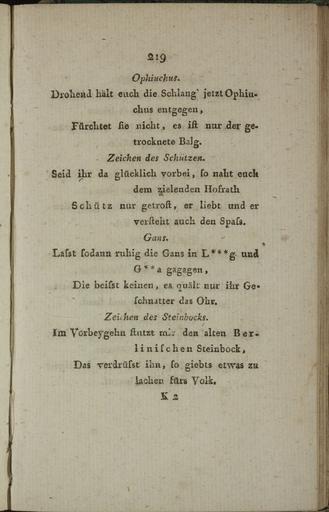 219
Ophiuchus.
Drohend hält euch die Schlang' jetzt Ophiu-
chus entgegen,
Fürchtet sie nicht, es ist nur der ge-
trocknete Balg.
Zeichen des Schützen.
Seid ihr da glücklich vorbei, so naht euch
dem zielenden Hofrath
Schütz nur getrost, er liebt und er
versteht auch den Spass.
Gans.
Lasst sodann ruhig die Gans in L***g und
G**a gagagen,
Die beisst keinen, es quält nur ihr Ge-
schnatter das Ohr.
Zeichen des Steinbocks.
Im Vorbeygehn stutzt mir den alten Ber-
linischen Steinbock,
Das verdrüsst ihn, so giebts etwas zu
lachen fürs Volk.
K 2